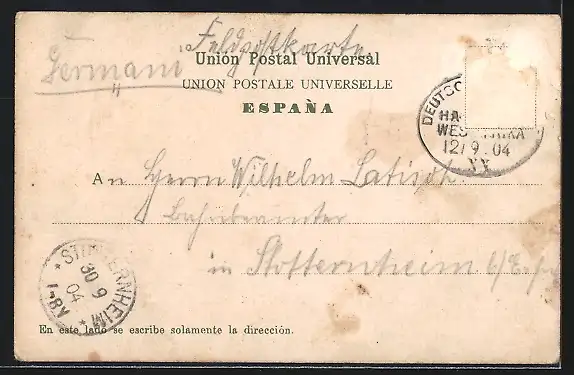 Feldpostkarte
Germani
Unión Postal Universal
UNION POSTALE UNIVERSELLE
ESPAÑA
DEUTSC
HA
WES RIKA
12/9 04
XX
An Herrn Wilhelm
Bahnbeamter
in Stotternheim
STOTTERNHEIM
30 9
04
1-8V
En este lado se escribe solamente la dirección.